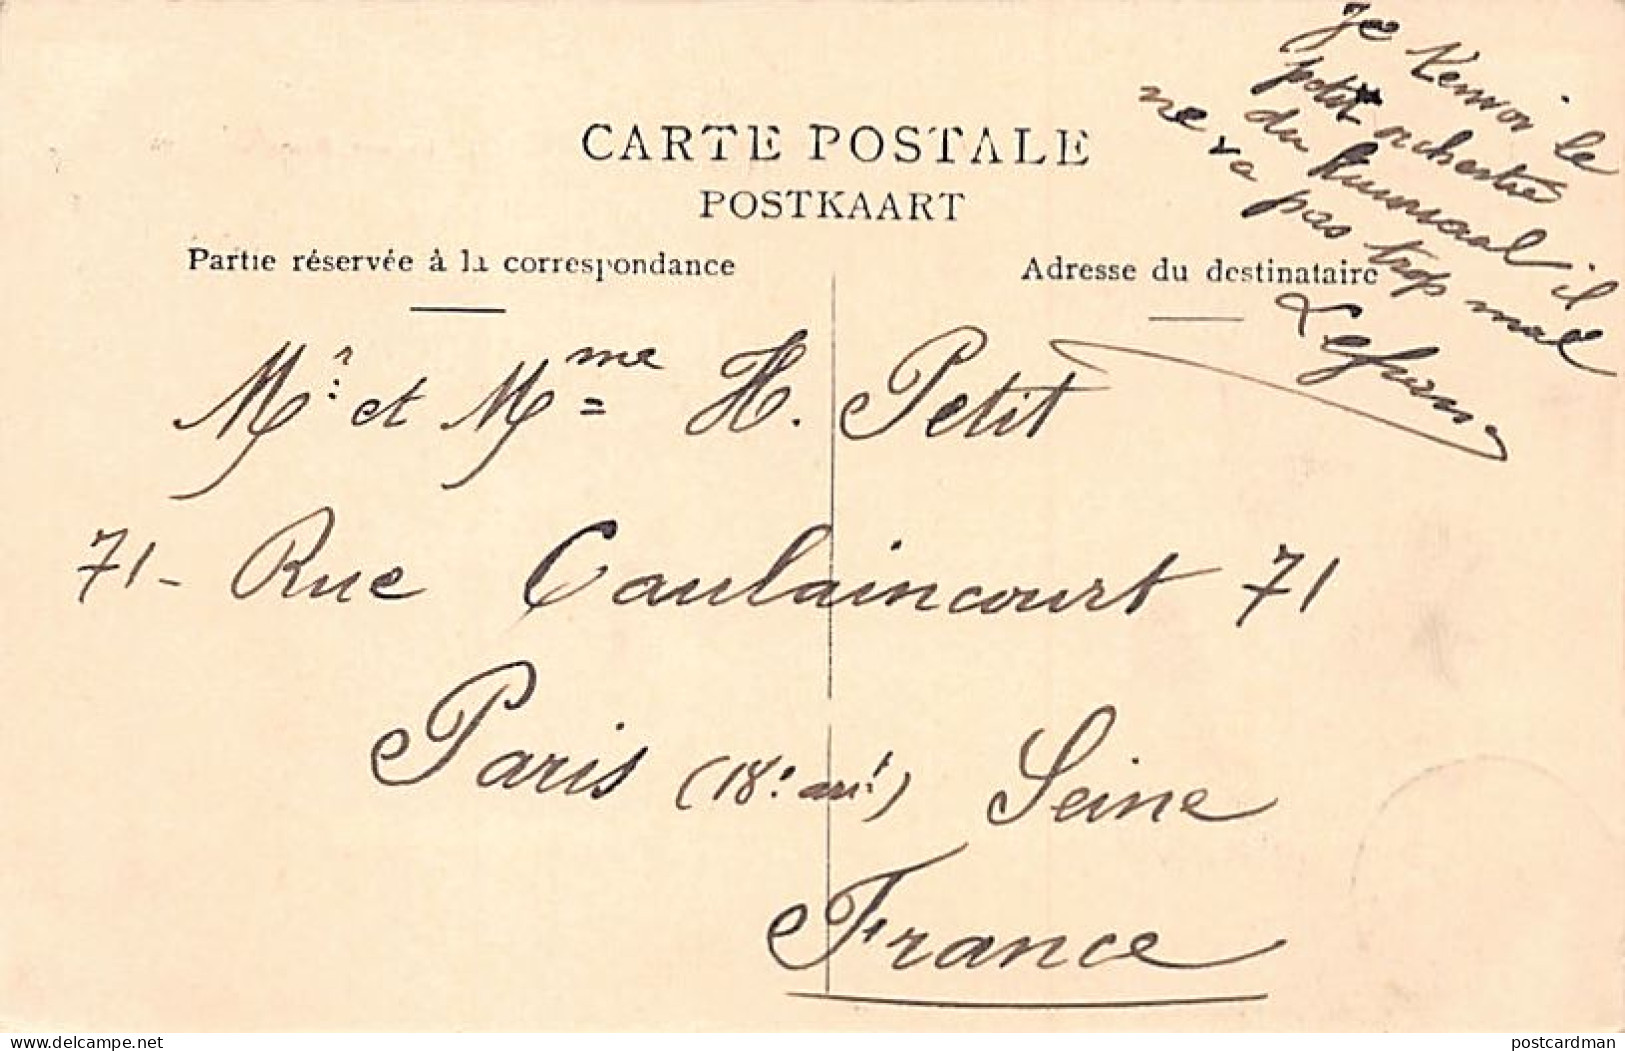 Je t'envoi le
petit orchestre
du Kursaal il
ne va pas trop mal
CARTE POSTALE
POSTKAART
Partie réservée à la correspondance
Adresse du destinataire
Mr. et Mme H. Petit
71 - Rue Caulaincourt 71
Paris (18e arrt) Seine
France
delcampe.net
postcardman